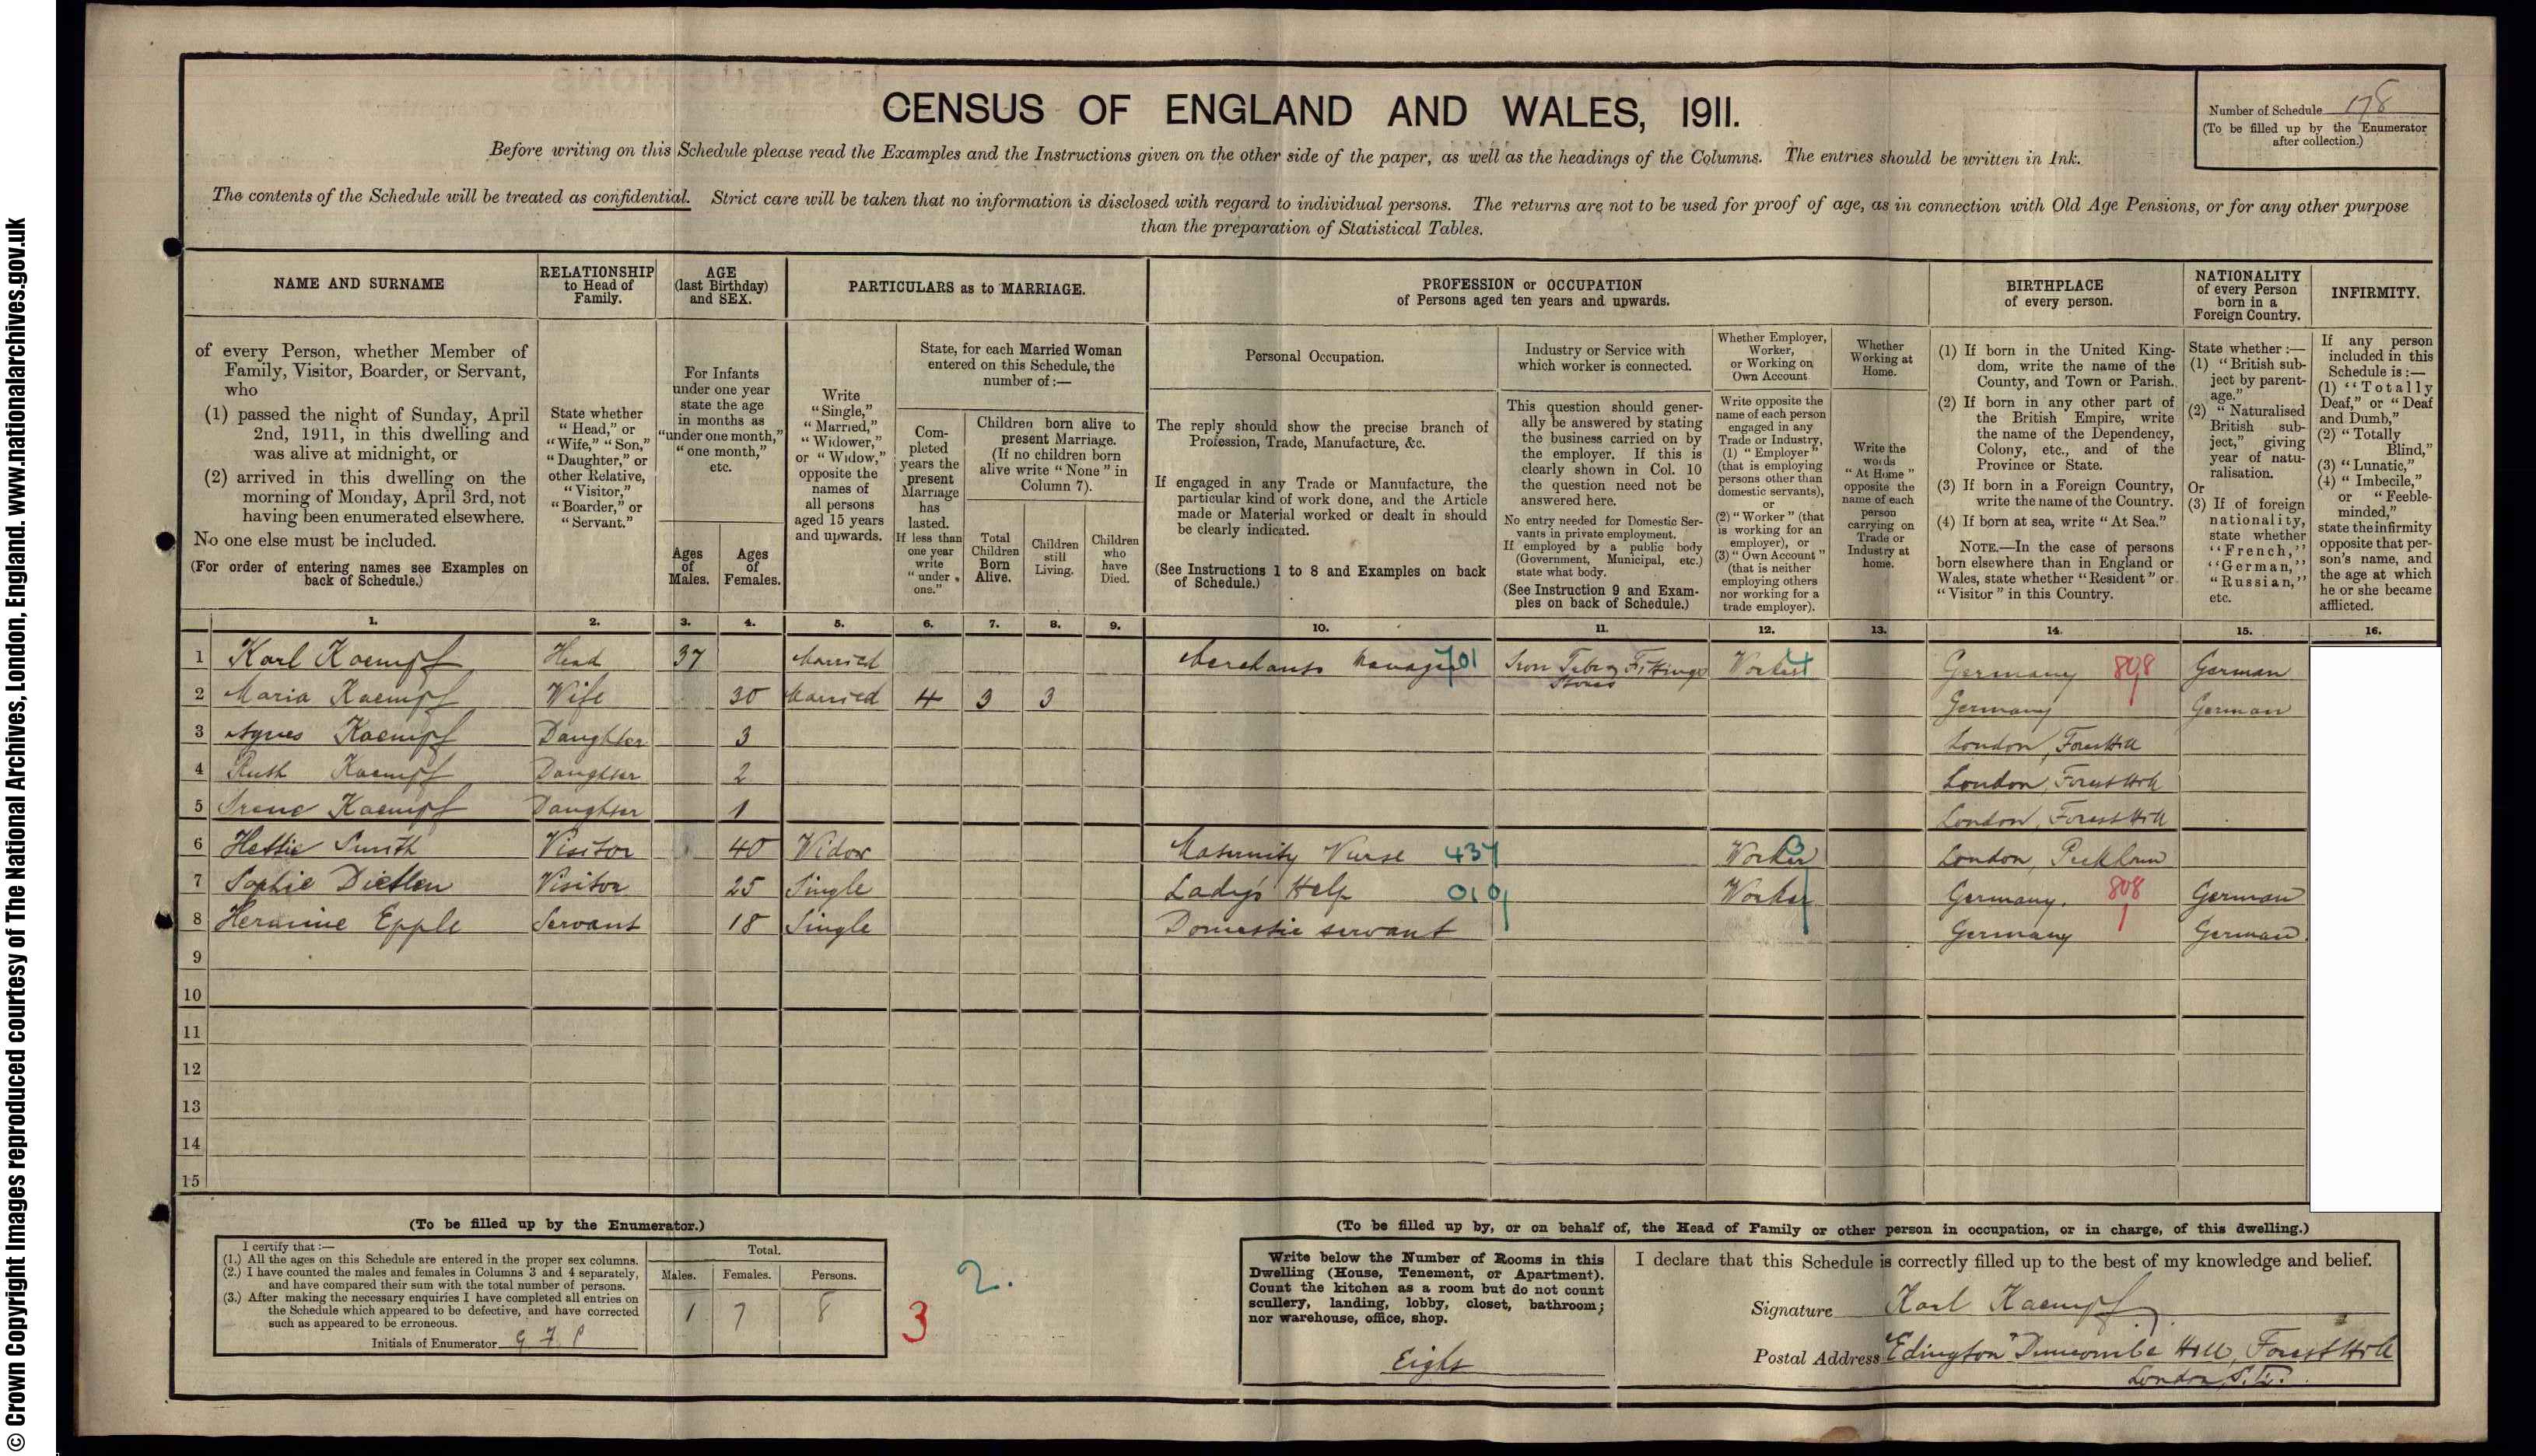 © Crown Copyright Images reproduced courtesy of The National Archives, London, England. www.nationalarchives.gov.uk
CENSUS OF ENGLAND AND WALES, 1911.
Number of Schedule 178
(To be filled up by the Enumerator
after collection.)
Before writing on this Schedule please read the Examples and the Instructions given on the other side of the paper, as well as the headings of the Columns. The entries should be written in Ink.
The contents of the Schedule will be treated as confidential. Strict care will be taken that no information is disclosed with regard to individual persons. The returns are not to be used for proof of age, as in connection with Old Age Pensions, or for any other purpose
than the preparation of Statistical Tables.
NAME AND SURNAME
of every Person, whether Member of
Family, Visitor, Boarder, or Servant,
who
(1) passed the night of Sunday, April
2nd, 1911, in this dwelling and
was alive at midnight, or
(2) arrived in this dwelling on the
morning of Monday, April 3rd, not
having been enumerated elsewhere.
No one else must be included.
(For order of entering names see Examples on
back of Schedule.)
RELATIONSHIP
to Head of
Family.
State whether
"Head," or
"Wife," "Son,"
"Daughter," or
other Relative,
"Visitor,"
"Boarder," or
"Servant."
AGE
(last Birthday)
and SEX.
For Infants
under one year
state the age
in months as
"under one month,"
"one month,"
etc.
Ages
of
Males.
Ages
of
Females.
PARTICULARS as to MARRIAGE.
Write
"Single,"
"Married,"
"Widower,"
or "Widow,"
opposite the
names of
all persons
aged 15 years
and upwards.
State, for each Married Woman
entered on this Schedule, the
number of:—
Com-
pleted
years the
present
Marriage
has
lasted.
If less than
one year
write
"under
one."
Children born alive to
present Marriage.
(If no children born
alive write "None" in
Column 7).
Total
Children
Born
Alive.
Children
still
Living.
Children
who
have
Died.
PROFESSION or OCCUPATION
of Persons aged ten years and upwards.
Personal Occupation.
The reply should show the precise branch of
Profession, Trade, Manufacture, &c.
If engaged in any Trade or Manufacture, the
particular kind of work done, and the Article
made or Material worked or dealt in should
be clearly indicated.
(See Instructions 1 to 8 and Examples on back
of Schedule.)
Industry or Service with
which worker is connected.
This question should gener-
ally be answered by stating
the business carried on by
the employer. If this is
clearly shown in Col. 10
the question need not be
answered here.
No entry needed for Domestic Ser-
vants in private employment.
If employed by a public body
(Government, Municipal, etc.)
state what body.
(See Instruction 9 and Exam-
ples on back of Schedule.)
Whether Employer,
Worker,
or Working on
Own Account
Write opposite the
name of each person
engaged in any
Trade or Industry,
(1) "Employer"
(that is employing
persons other than
domestic servants),
or
(2) "Worker" (that
is working for an
employer), or
(3) "Own Account"
(that is neither
employing others
nor working for a
trade employer).
Whether
Working at
Home.
Write the
words
"At Home"
opposite the
name of each
person
carrying on
Trade or
Industry at
home.
BIRTHPLACE
of every person.
(1) If born in the United King-
dom, write the name of the
County, and Town or Parish.
(2) If born in any other part of
the British Empire, write
the name of the Dependency,
Colony, etc., and of the
Province or State.
(3) If born in a Foreign Country,
write the name of the Country.
(4) If born at sea, write "At Sea."
NOTE.—In the case of persons
born elsewhere than in England or
Wales, state whether "Resident" or
"Visitor" in this Country.
NATIONALITY
of every Person
born in a
Foreign Country.
State whether:—
(1) "British sub-
ject by parent-
age."
(2) "Naturalised
British sub-
ject," giving
year of natu-
ralisation.
Or
(3) If of foreign
nationality,
state whether
"French,"
"German,"
"Russian,"
etc.
INFIRMITY.
If any person
included in this
Schedule is:—
(1) "Totally
Deaf," or "Deaf
and Dumb,"
(2) "Totally
Blind,"
(3) "Lunatic,"
(4) "Imbecile,"
or "Feeble-
minded,"
state the infirmity
opposite that per-
son's name, and
the age at which
he or she became
afflicted.
1. 2. 3. 4. 5. 6. 7. 8. 9. 10. 11. 12. 13. 14. 15. 16.
1 Karl Kaempf Head 37 Married Merchants Manager 701 Iron Tube Fittings Stores Worker Germany 808 German
2 Maria Kaempf Wife 30 Married 4 3 3 Germany German
3 Agnes Kaempf Daughter 3 London, Forest Hill
4 Ruth Kaempf Daughter 2 London, Forest Hill
5 Irene Kaempf Daughter 1 London, Forest Hill
6 Hettie Smith Visitor 40 Widow Maternity Nurse 437 Worker London, Peckham
7 Sophie Dietlen Visitor 25 Single Lady's Help 010 Worker Germany. 808 German
8 Hermine Epple Servant 18 Single Domestic servant Germany German
9
10
11
12
13
14
15
(To be filled up by the Enumerator.)
I certify that:—
(1.) All the ages on this Schedule are entered in the proper sex columns.
(2.) I have counted the males and females in Columns 3 and 4 separately,
and have compared their sum with the total number of persons.
(3.) After making the necessary enquiries I have completed all entries on
the Schedule which appeared to be defective, and have corrected
such as appeared to be erroneous.
Initials of Enumerator G F P
Total.
Males. Females. Persons.
1 7 8
2.
3
(To be filled up by, or on behalf of, the Head of Family or other person in occupation, or in charge, of this dwelling.)
Write below the Number of Rooms in this
Dwelling (House, Tenement, or Apartment).
Count the kitchen as a room but do not count
scullery, landing, lobby, closet, bathroom;
nor warehouse, office, shop.
Eight
I declare that this Schedule is correctly filled up to the best of my knowledge and belief.
Signature Karl Kaempf
Postal Address "Edington" Duncombe Hill, Forest Hill
London, S.E.